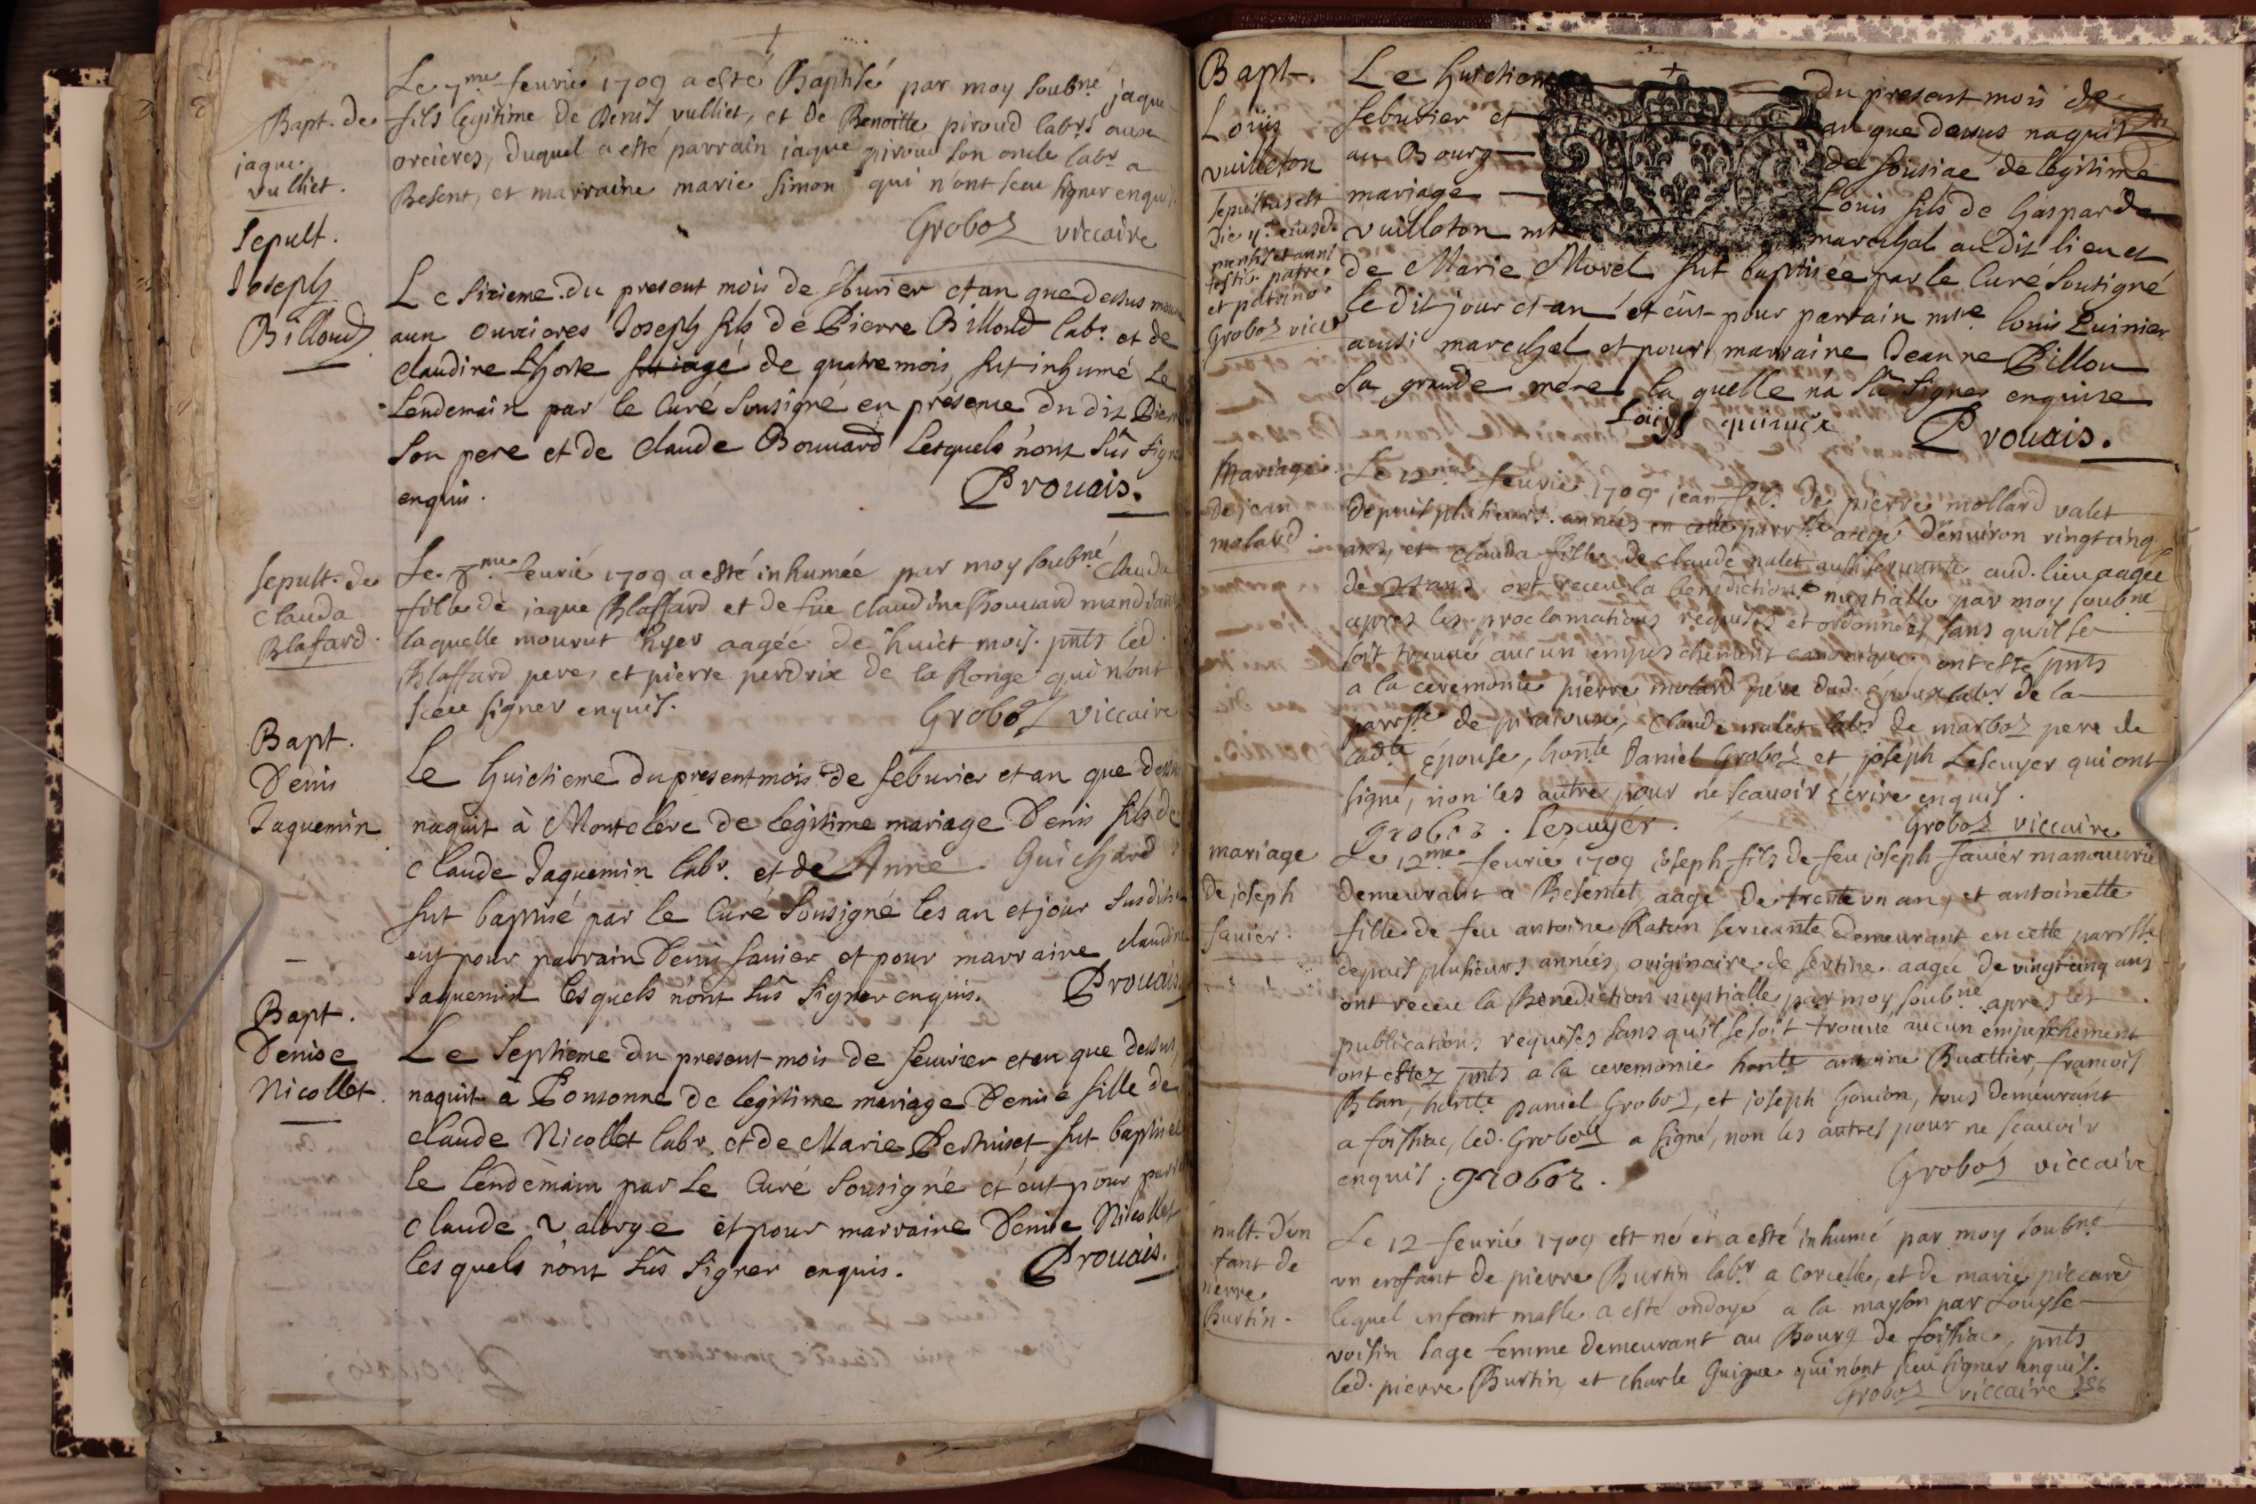 Bapt. de
jaque
vulliet.
Le 7me feurié 1709 a esté Baptisé par moy soubné jaque
fils legitime de Denis vulliet, et de Benoitte piroud labrs aux
orcieres, duquel a esté parrain jaque piroud son oncle labr a
Besent, et marraine marie simon qui n'ont sceu signer enquis
Groboz viccaire
Sepult.
Joseph
Billoud
Le sixieme du present mois de feburier et an que dessus
aux ourcieres Joseph fils de Pierre Billoud labr. et de
claudine Lhoste agé de quatre mois, fut inhumé Le
Lendemain par le Curé sousigné en présence du dit
son pere et de claude Bouuard Lesquels n'ont sûs
enquis.
Prouais.
sepult. de
Clauda
Blafard.
Le 8me feurié 1709 a esté inhumée par moy soubné Clauda
fille de jaque Blaffard et de fue claudine Bouuard
laquelle mourut hyer aagée de huict mois. pnts led.
Blaffard pere, et pierre perdrix de la Ronge qui n'ont
sceu signer enquis.
Groboz viccaire
Bapt.
Denis
Jaquemin
Le huictieme du present mois de feburier et an que dessus
naquit à Montclere de légitime mariage Denis fils de
Claude Jaquemin labr. et de Anne Guichard
fut baptisé par le Curé sousigné les an et jour susdits
eut pour parrain Denis sauier et pour marraine claudine
Jaquemin lesquels n'ont sûs signer enquis. Prouais
Bapt.
Denise
Nicollet.
Le Septieme du present mois de feuurier et an que dessus
naquit a Ponsonne de legitime mariage Denise fille de
claude Nicollet labr. et de Marie fut
le lendemain par Le Curé sousigné et eut pour
Claude Valorge et pour marraine Denise Nicollet
les quels n'ont sûs signer enquis. Prouais.
Bapt.
Louis
vuilloton
sepultus est
die ejusd.
mensis et anni
testib. patre
et patrino
Groboz vicc.
Le huictieme du present mois de
feburier et an que dessus naquit
au Bourg de foisiac de legitime
mariage Louis fils de Gaspard
vuilloton mtre marechal au dit lieu et
de Marie Morel fut baptisée par le Curé sousigné
le dit jour et an et eût pour parrain mtre louis Quinier
aussi marechal et pour marraine Jeanne Pillou
sa grande mére la quelle n'a sû signer enquise
Prouais.
Mariage
de jean
molard
Le 12me feurié 1709 jean fils de pierre mollard valet
depuis plusieurs années en cette parrsse aagé d'enuiron vingtcinq
ans, et clauda fille de claude nalet aussi seruante aud. lieu aagée
de ans ont receu la benediction nuptialle par moy soubné
apres les proclamations requises et ordonnées sans qu'il se
soit trouué aucun empeschement canonique, ont esté pnts
a la ceremonie pierre molard pere dud. époux labr de la
parrsse de piraioux, claude nalet labr de marboz pere de
ladte épouse, honte Daniel Groboz et joseph Lescuyer qui ont
signé, non les autres pour ne scauoir écrire enquis.
groboz. lescuyer. Groboz viccaire
mariage
de joseph
sauier.
Le 12me feurié 1709 joseph fils de feu joseph sauier manouurié
demeurant a Besentet, aagé de trente un an, et antoinette
fille de feu antoine Raton seruante demeurant en cette parrsse
depuis plusieurs années, originaire de aagée de vingtcinq ans
ont receu la Benediction nuptialle par moy soubné apres les
publications requises sans qu'il se soit trouué aucun empeschement
ont estez pnts a la ceremonie honte antoine Buattier, francois
Blan, honte Daniel Groboz, et joseph Gouion, tous demeurant
a foissiac, led. Groboz a signé, non les autres pour ne scauoir
enquis. groboz. Groboz viccaire
d'en
fant de
pierre
Burtin.
Le 12 feurié 1709 est né et a esté inhumé par moy soubné
un enfant de pierre Burtin labr a Corcelle, et de marie piccard
lequel enfant masle a esté ondoyé a la mayson par Louyse
voisin sage femme demeurant au Bourg de foissiac, pnts
led. pierre Burtin, et charle Guigue qui n'ont sceu signer enquis.
Groboz viccaire